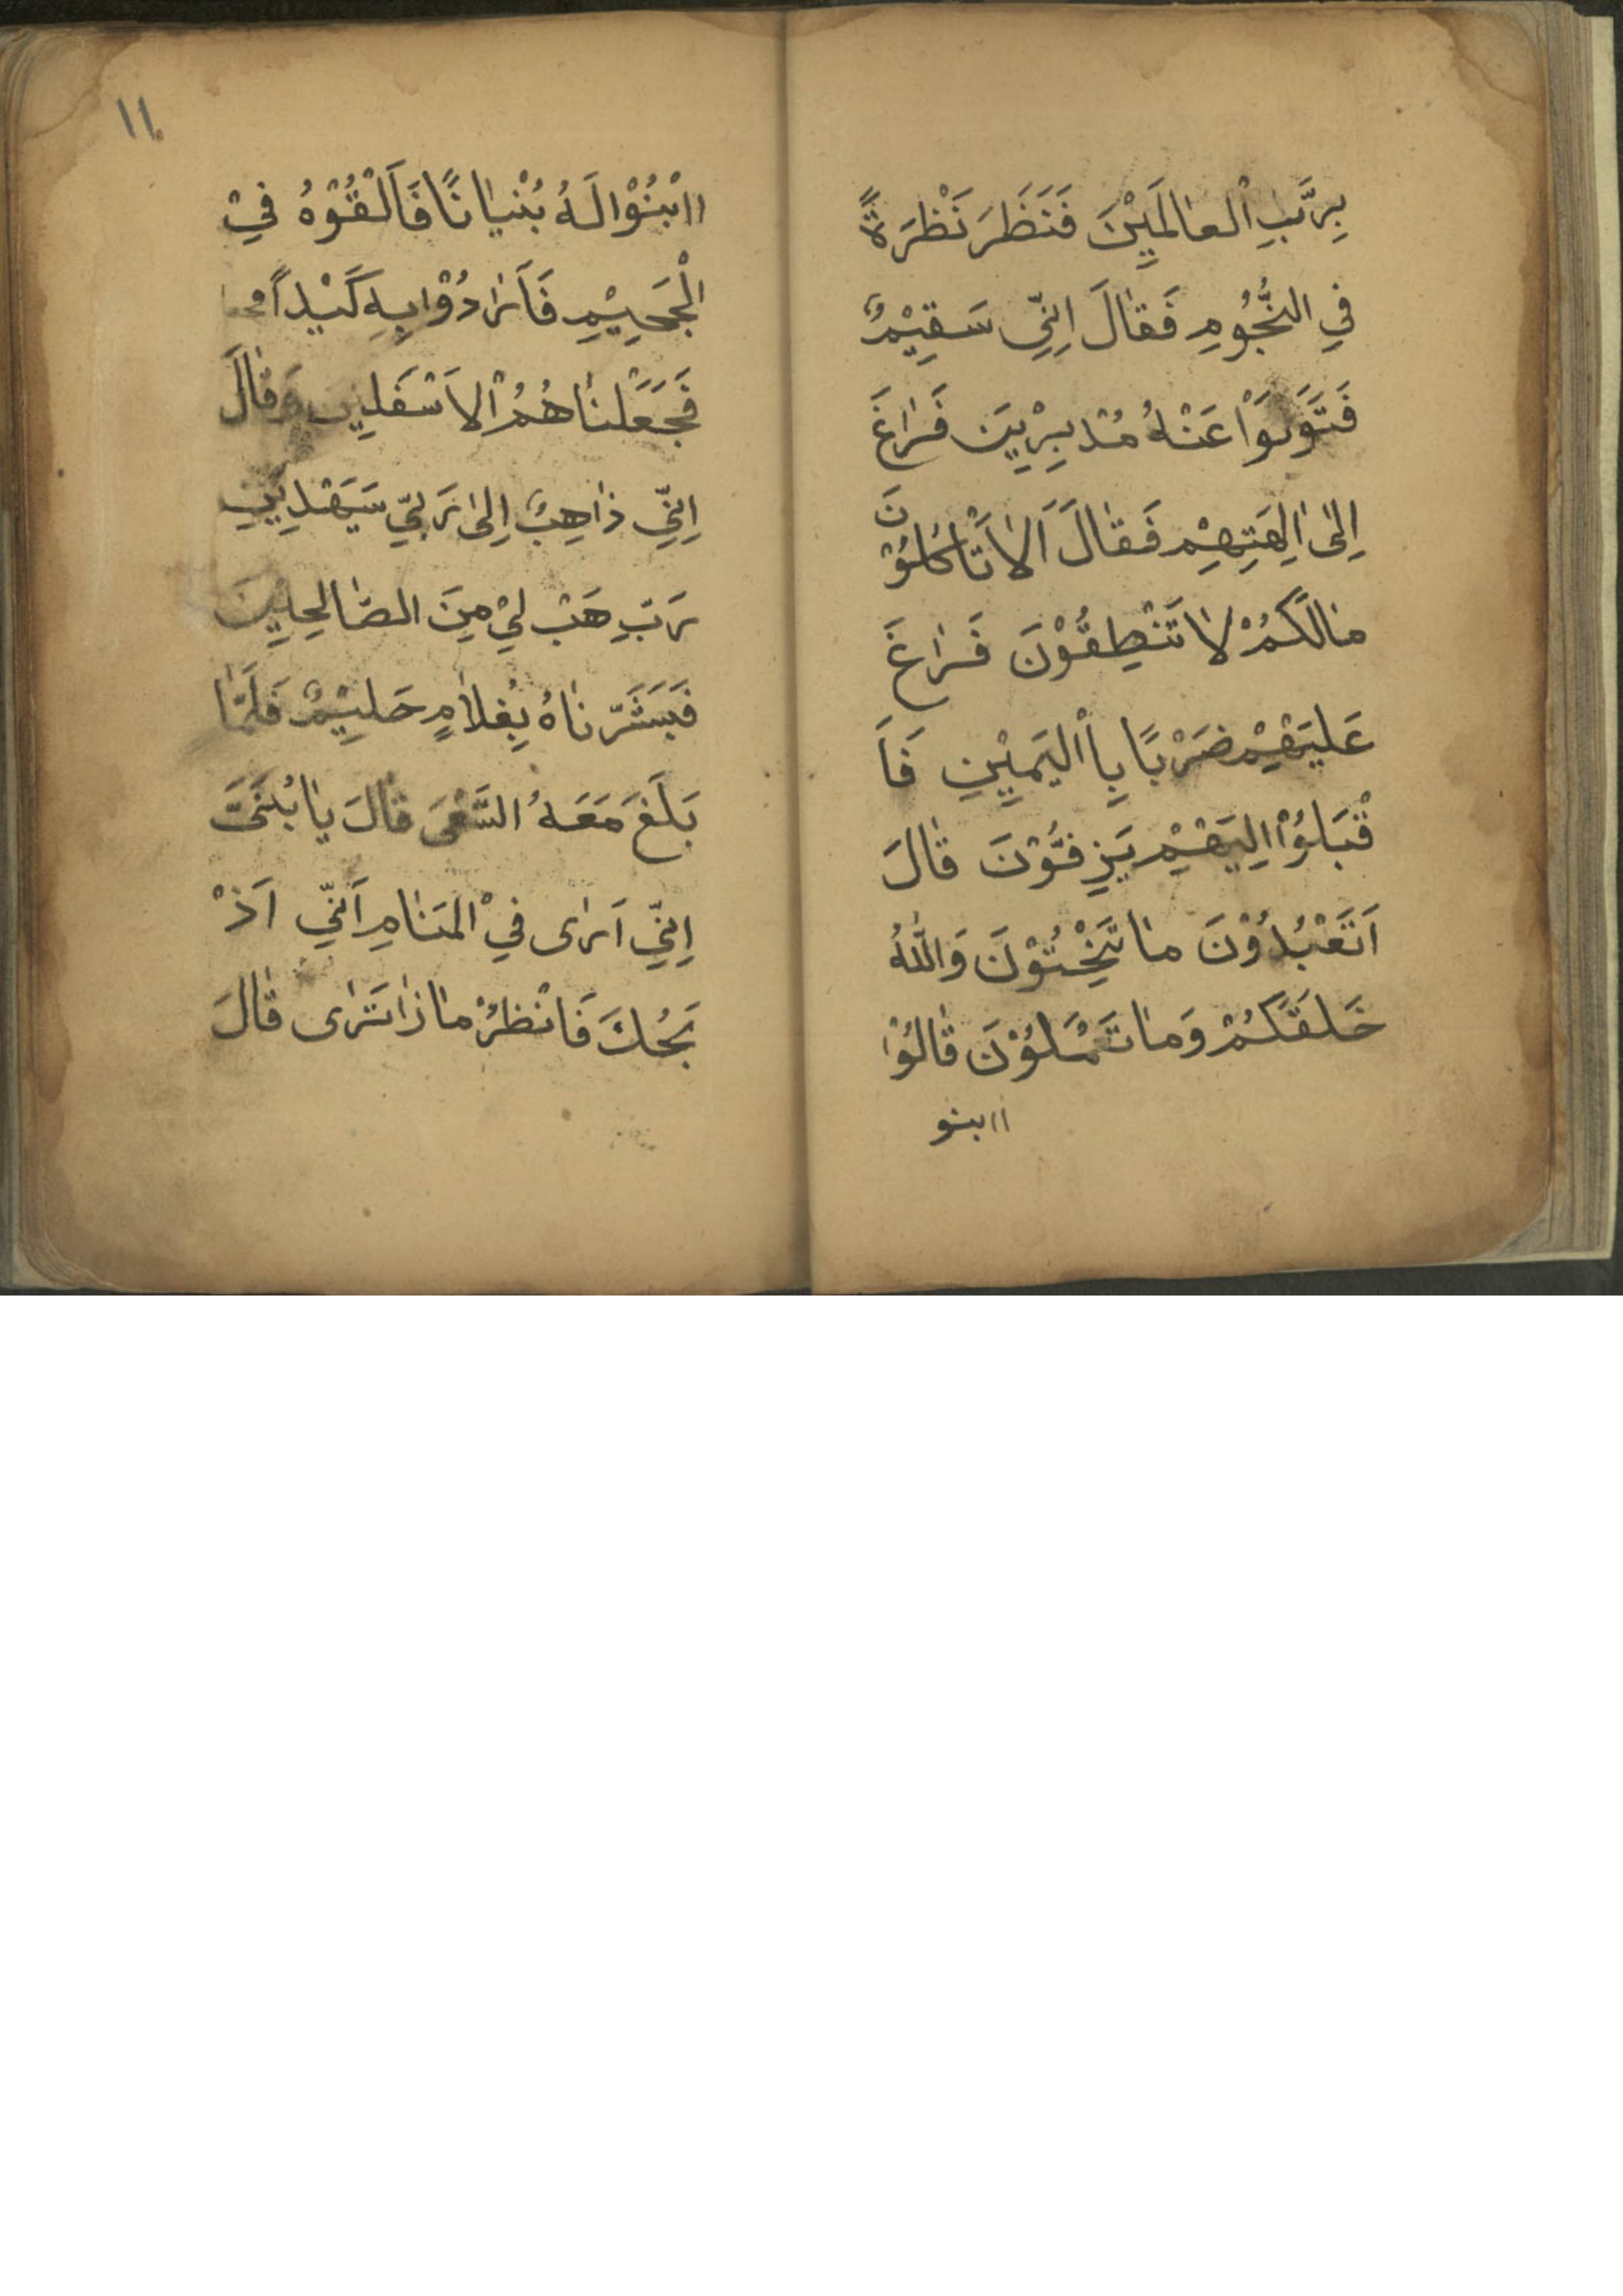 بِرَبِّ الْعَالَمِيْنَ فَنَظَرَ نَظْرَةً
فِي النُّجُوْمِ فَقَالَ اِنِّي سَقِيْمٌ
فَتَوَلَّوْا عَنْهُ مُدْبِرِيْنَ فَرَاغَ
اِلىٰ اٰلِهَتِهِمْ فَقَالَ اَلَا تَاْكُلُوْنَ
مَالَكُمْ لَا تَنْطِقُوْنَ فَرَاغَ
عَلَيْهِمْ ضَرْبًا بِاالْيَمِيْنِ فَاَ
قْبَلُوْا اِلَيْهِمْ يَزِفُّوْنَ قَالَ
اَتَعْبُدُوْنَ مَا تَنْحِتُوْنَ وَاللهُ
خَلَقَكُمْ وَمَا تَعْمَلُوْنَ قَالُوْا
اابنو
١١
اابْنُوْا لَهُ بُنْيَانًا فَاَلْقُوْهُ فِيْ
الْجَحِيْمِ فَاَرَادُوْا بِهِ كَيْداً
فَجَعَلْنَاهُمُ الْاَسْفَلِيْنَ وَقَالَ
اِنِّي ذَاهِبٌ اِلىٰ رَبِّي سَيَهْدِيْنِ
رَبِّ هَبْ لِيْ مِنَ الصَّالِحِيْنَ
فَبَشَّرْنَاهُ بِغُلَامٍ حَلِيْمٌ فَلَمَّا
بَلَغَ مَعَهُ السَّعْيَ قَالَ يَا بُنَيَّ
اِنِّي اَرَى فِيْ الْمَنَامِ اَنِّي اَذْ
بَحُكَ فَانْظُرْ مَا ذَا تَرَى قَالَ